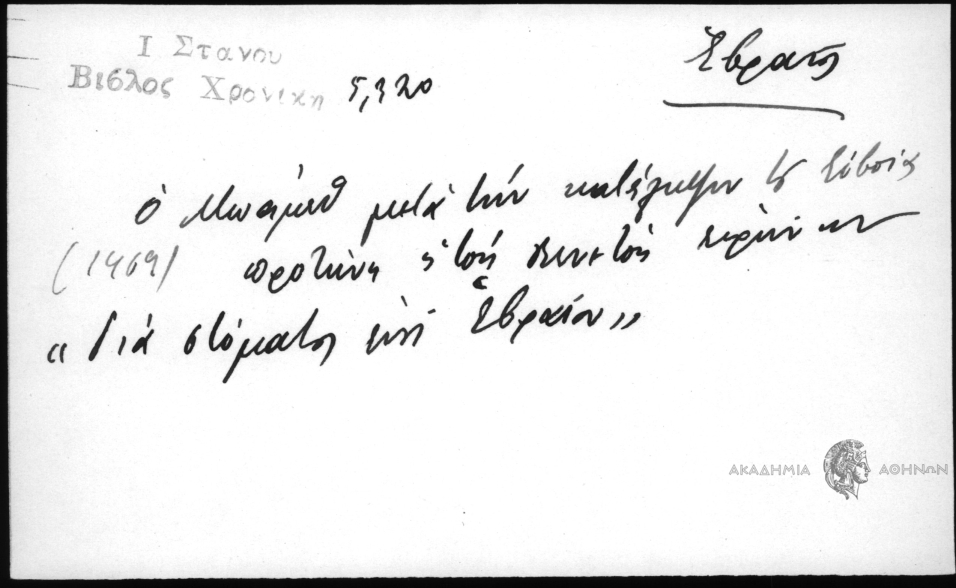 Ι Στανου
Βιβλος Χρονικη 5,320
Ἑβραῖος
ὁ Μωάμεθ μετὰ τὴν κατάληψιν τῆς Εὐβοίας
(1469) προτείνει εἰς τοὺς Ἐνετοὺς εἰρήνην
"διὰ στόματος ἑνὸς Ἑβραίου"
ΑΚΑΔΗΜΙΑ ΑΘΗΝΩΝ